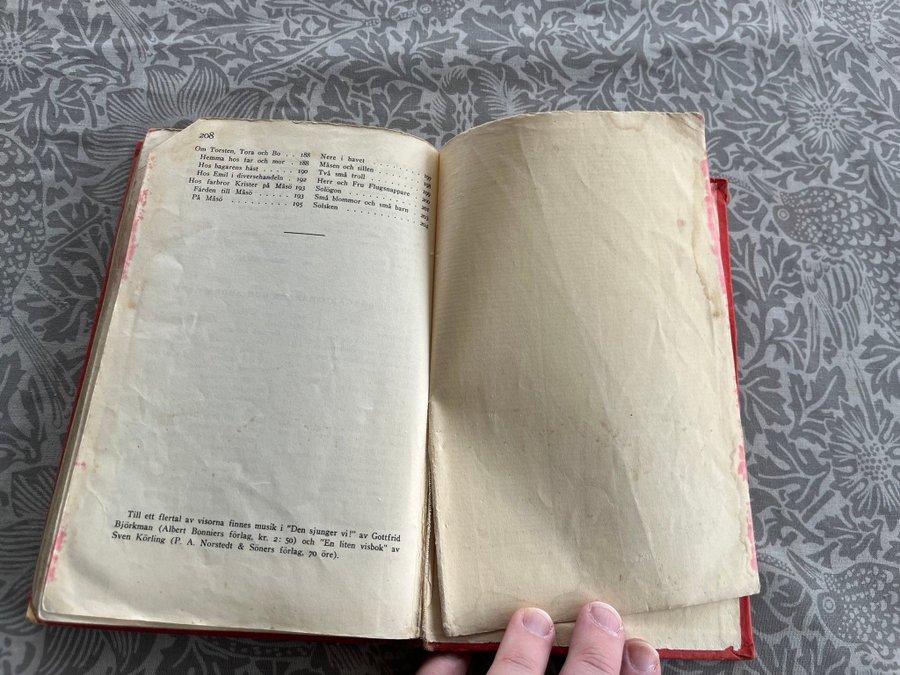 208
Om Torsten, Tora och Bo . . 188
Hemma hos far och mor . 188
Hos bagarens häst . . . . . 190
Hos Emil i diversehandeln . 192
Hos farbror Krister på Måsö 193
Färden till Måsö . . . . . . 193
På Måsö . . . . . . . . . . 195
Nere i havet . . . . . . . . 197
Måsen och sillen . . . . . . 198
Två små troll . . . . . . . 199
Herr och Fru Flugsnappare 200
Solögon . . . . . . . . . . 202
Små blommor och små barn 203
Solsken . . . . . . . . . . 204
Till ett flertal av visorna finnes musik i "Den sjunger vi!" av Gottfrid
Björkman (Albert Bonniers förlag, kr. 2: 50) och "En liten visbok" av
Sven Körling (P. A. Norstedt & Söners förlag, 70 öre).